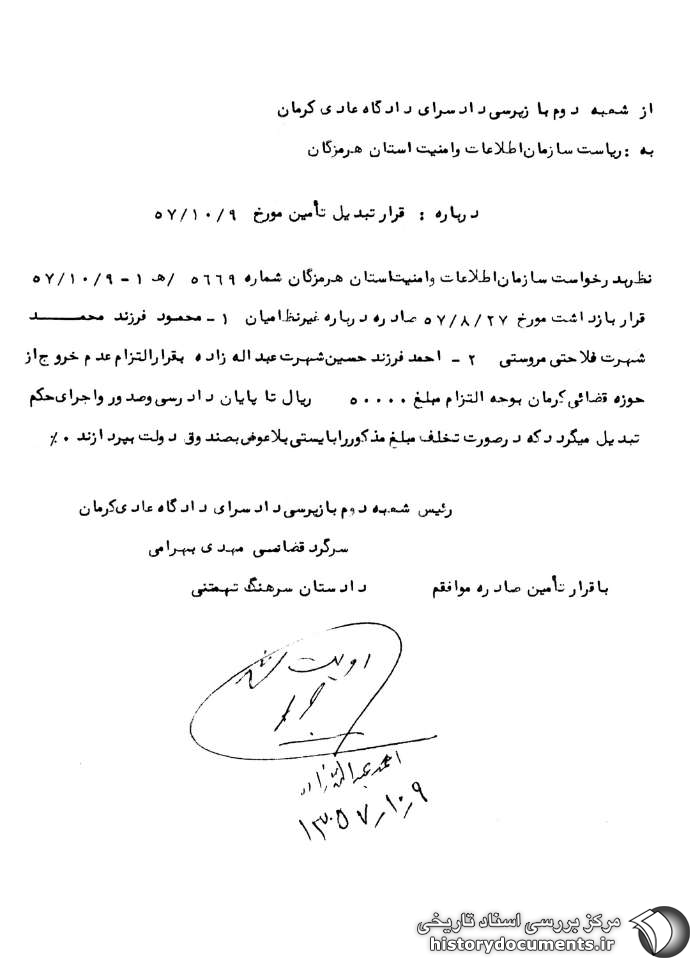 از شعبه دوم بازپرسی دادسرای دادگاه عادی کرمان
به : ریاست سازمان اطلاعات و امنیت استان هرمزگان
درباره : قرار تبدیل تأمین مورخ ۵۷/۱۰/۹
نظر بدرخواست سازمان اطلاعات و امنیت استان هرمزگان شماره ۵۶۶۹ /هـ ۱ - ۵۷/۱۰/۹
قرار بازداشت مورخ ۵۷/۸/۲۷ صادره درباره غیرنظامیان ۱- محمود فرزند محمد
شهرت فلاحتی مروستی ۲- احمد فرزند حسین شهرت عبداله زاده بقرار التزام عدم خروج از
حوزه قضائی کرمان بوجه التزام مبلغ ۵۰۰۰۰ ریال تا پایان دادرسی وصدور واجرای حکم
تبدیل میگردد که درصورت تخلف مبلغ مذکور را بایستی بلاعوض بصندوق دولت بپردازند ۰٪
رئیس شعبه دوم بازپرسی دادسرای دادگاه عادی کرمان
سرگرد قضائی مهدی بهرامی
باقرار تأمین صادره موافقم دادستان سرهنگ تهمتنی
رویت شد
احمد عبداله زاده
۱۳۵۷/۱۰/۹
مرکز بررسی اسناد تاریخی
historydocuments.ir